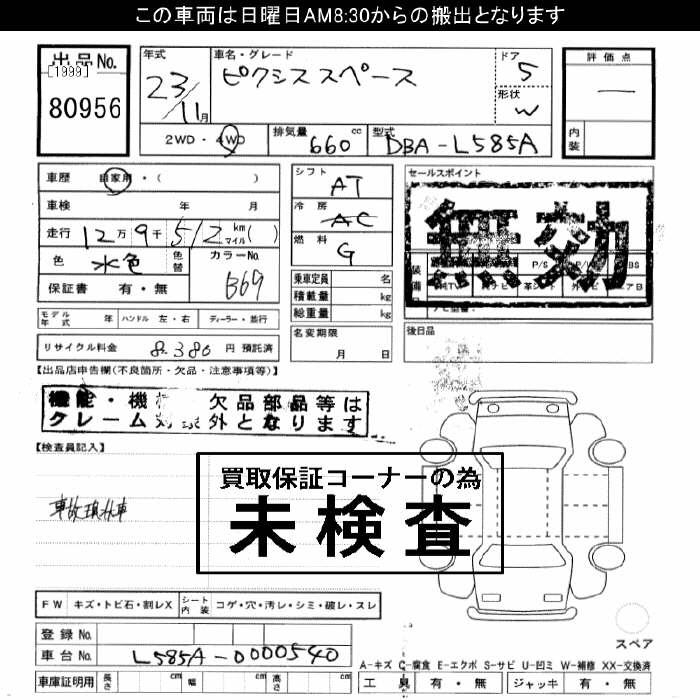 この車両は日曜日AM8:30からの搬出となります
出品No.
[1999]
80956
年式
23/11月
車名・グレード
ピクシススペース
ドア
5
形状
W
評価点
―
内装
2WD・4WD
排気量
660cc
型式
DBA-L585A
車歴 自家用・( )
車検 年 月
走行 12万9千512 km マイル( )
色 水色 色替
カラーNo. B69
保証書 有・無
シフト AT
冷房 AC
燃料 G
乗車定員 名
積載量 kg
総重量 kg
名変期限
月 日
セールスポイント
無効
装備
P/S
後日品
モデル年式 年 ハンドル 左・右 ディーラー・並行
リサイクル料金 8,380 円 預託済
【出品店申告欄(不良箇所・欠品・注意事項等)】
機能・機 欠品部品等は
クレーム 外となります
【検査員記入】
事故現状車
買取保証コーナーの為
未検査
FW キズ・トビ石・割レX シート内装 コゲ・穴・汚レ・シミ・破レ・スレ
登録No.
車台No. L585A-0000540
車庫証明用 長さ cm 幅 cm 高さ cm
スペア
A-キズ C-腐食 E-エクボ S-サビ U-凹ミ W-補修 XX-交換済
工具 有・無 ジャッキ 有・無